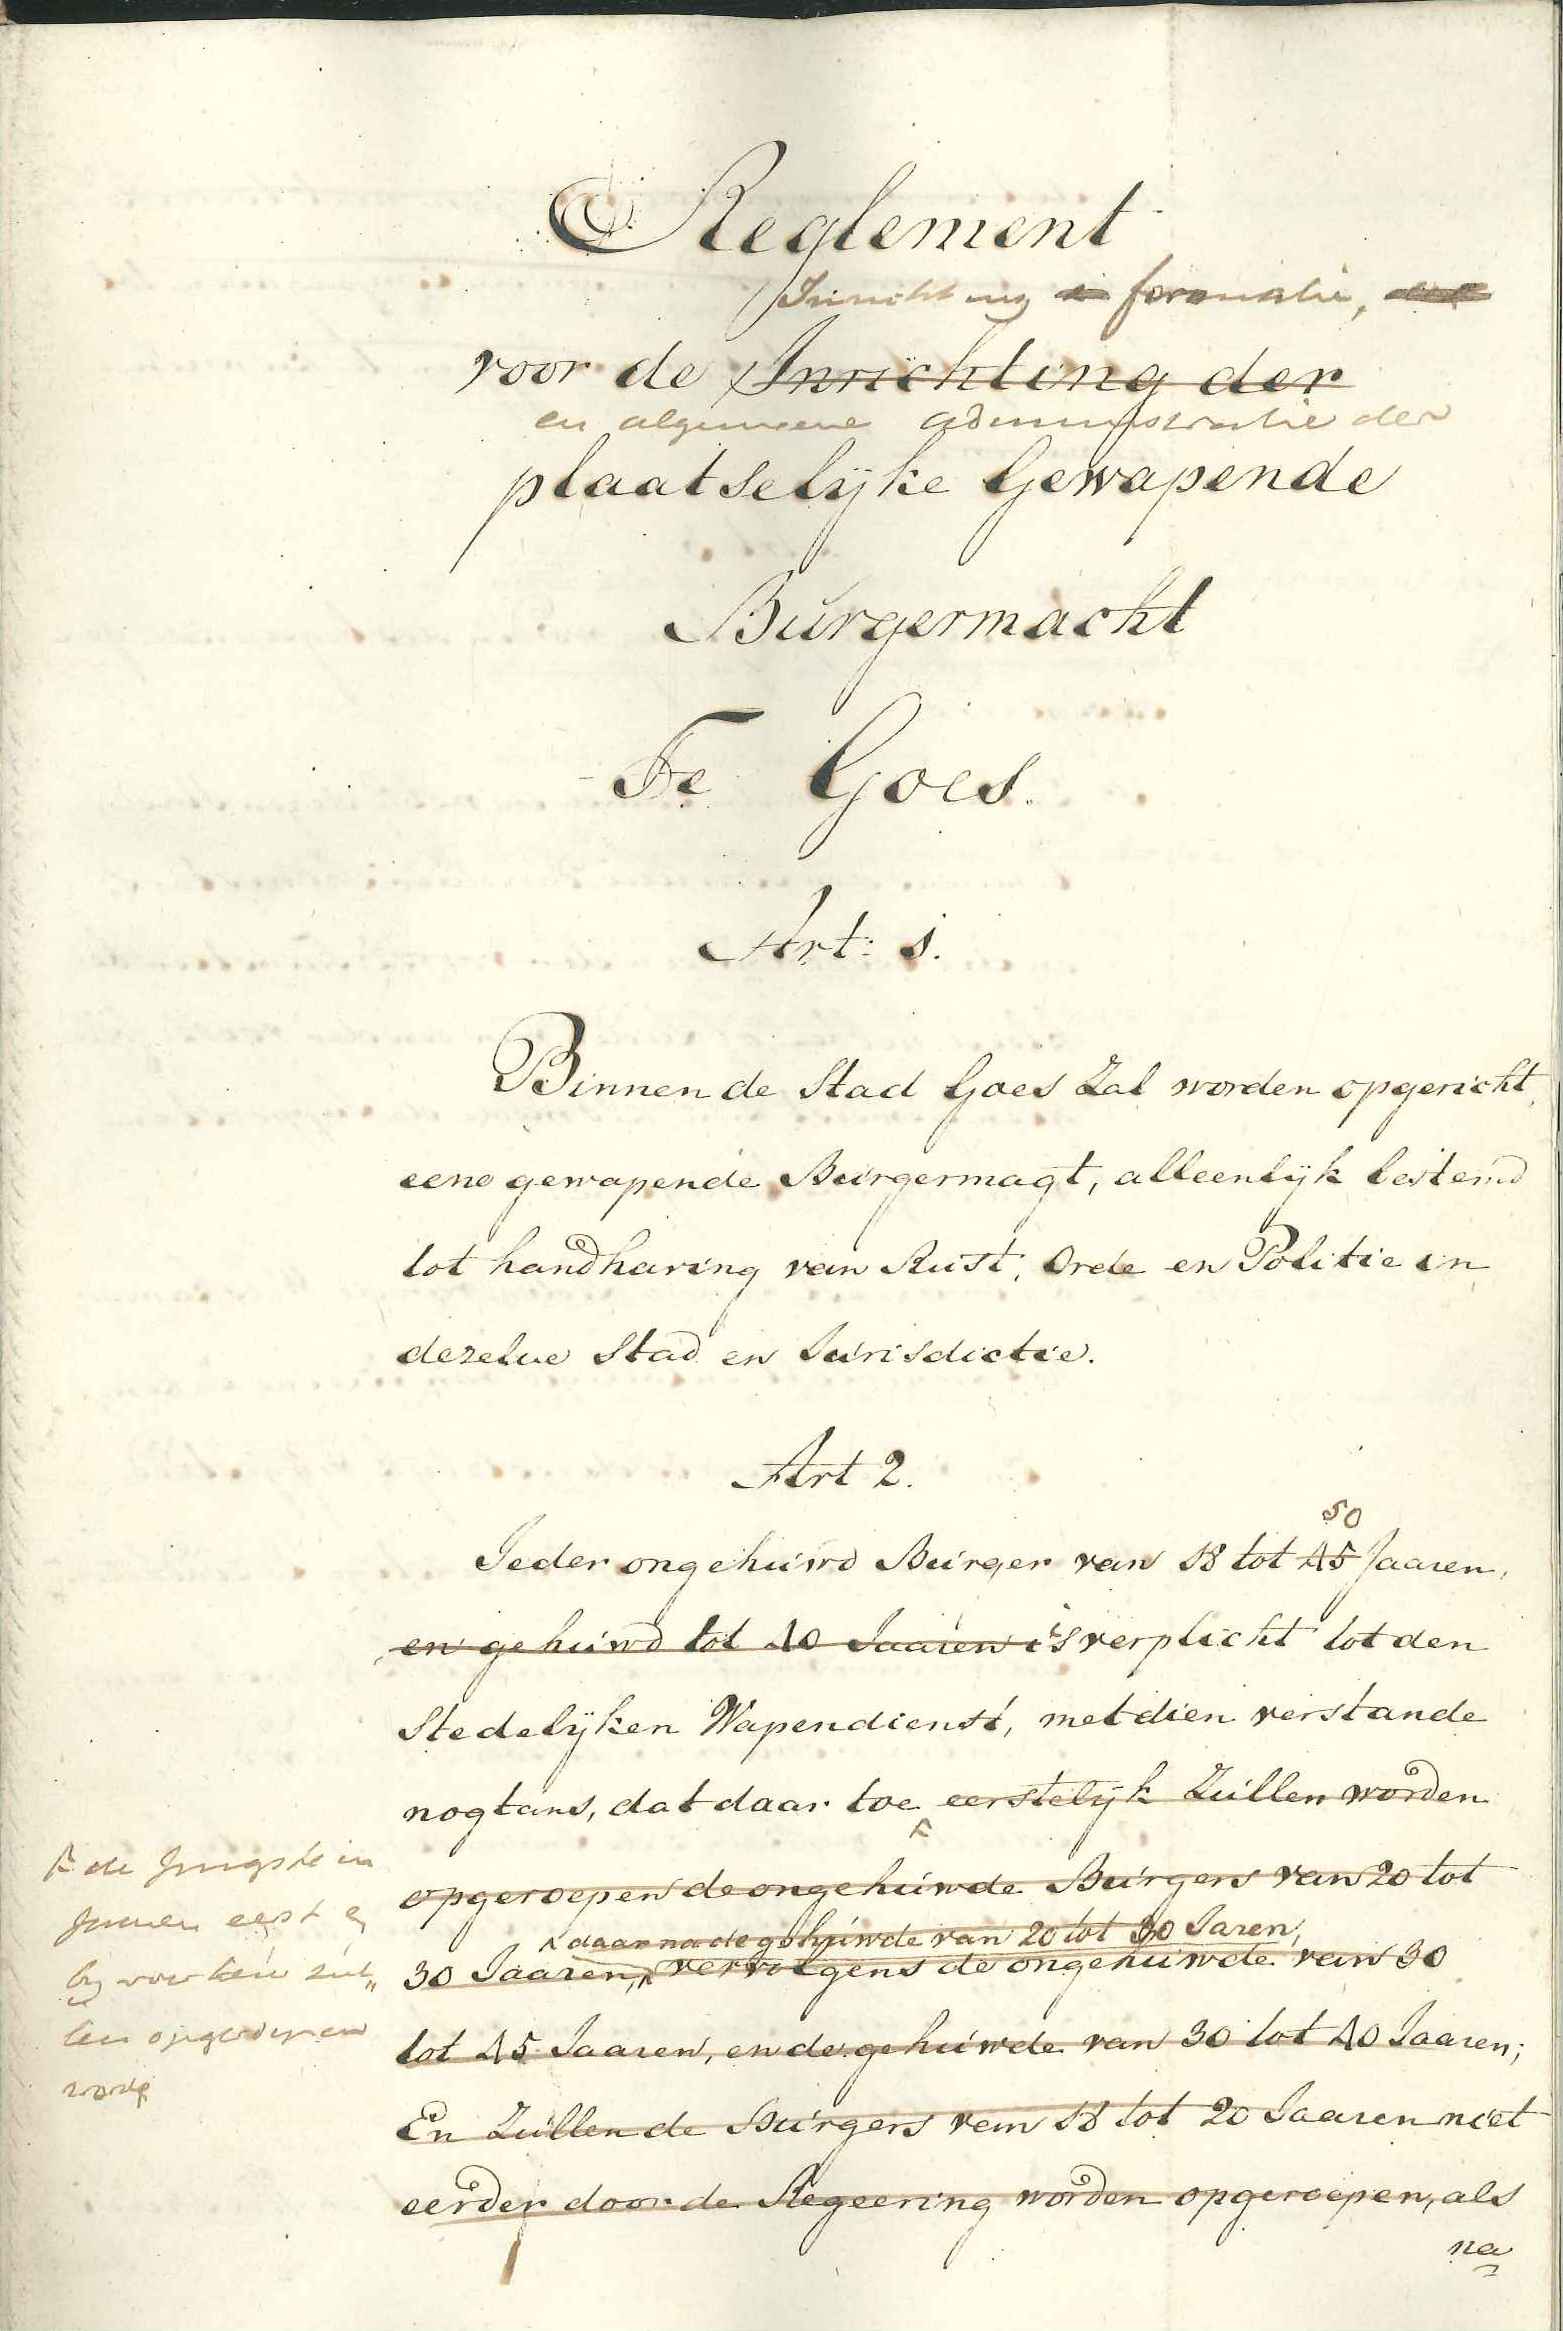 Reglement
Inrichting formatie,
voor de Inrichting der
en algemeene administratie der
plaatselÿke Gewapende
Burgermacht
Te Goes.
Art: 1.
Binnen de Stad Goes Zal worden opgericht,
eene gewapende Burgermagt, alleenlÿk bestemd
tot handhaving van Rust, Orde en Politie in
dezelve Stad en Jurisdictie.
Art 2.
50
Ieder ongehuwd Burger van 18 tot 45 Jaaren,
en gehuwd tot 40 Jaaren is verplicht tot den
Stedelÿken Wapendienst, met dien verstande
nogtans, dat daar toe eerstelÿk Zullen worden
opgeroepen de ongehuwde Burgers van 20 tot
daar na de gehuwde van 20 tot 30 Jaren,
30 Jaaren, vervolgens de ongehuwde van 30
tot 45 Jaaren, en de gehuwde van 30 tot 40 Jaaren;
En Zullen de Burgers van 18 tot 20 Jaaren niet
eerder door de Regeering worden opgeroepen, als
na
de Jongste in
Jaaren eerst
by voorkeur zul„
len opgeroepen